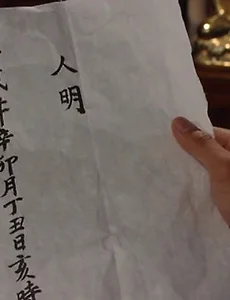 人明
年辛卯月丁丑日亥時